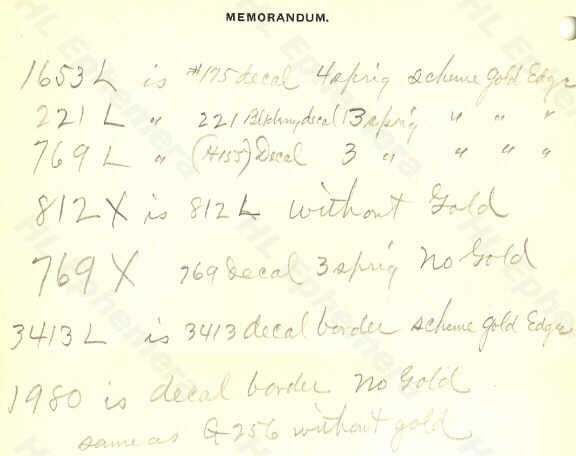 MEMORANDUM.
1653 L is #175 decal 4 sprig scheme gold Edge
221 L " 221 decal 3 sprig " " "
769 L " (H155) Decal 3 " " " "
812 X is 812 L without Gold
769 X 769 Decal 3 sprig No Gold
3413 L is 3413 decal border scheme gold Edge
1980 is decal border No Gold
same as G 256 without gold
HL Ephemera